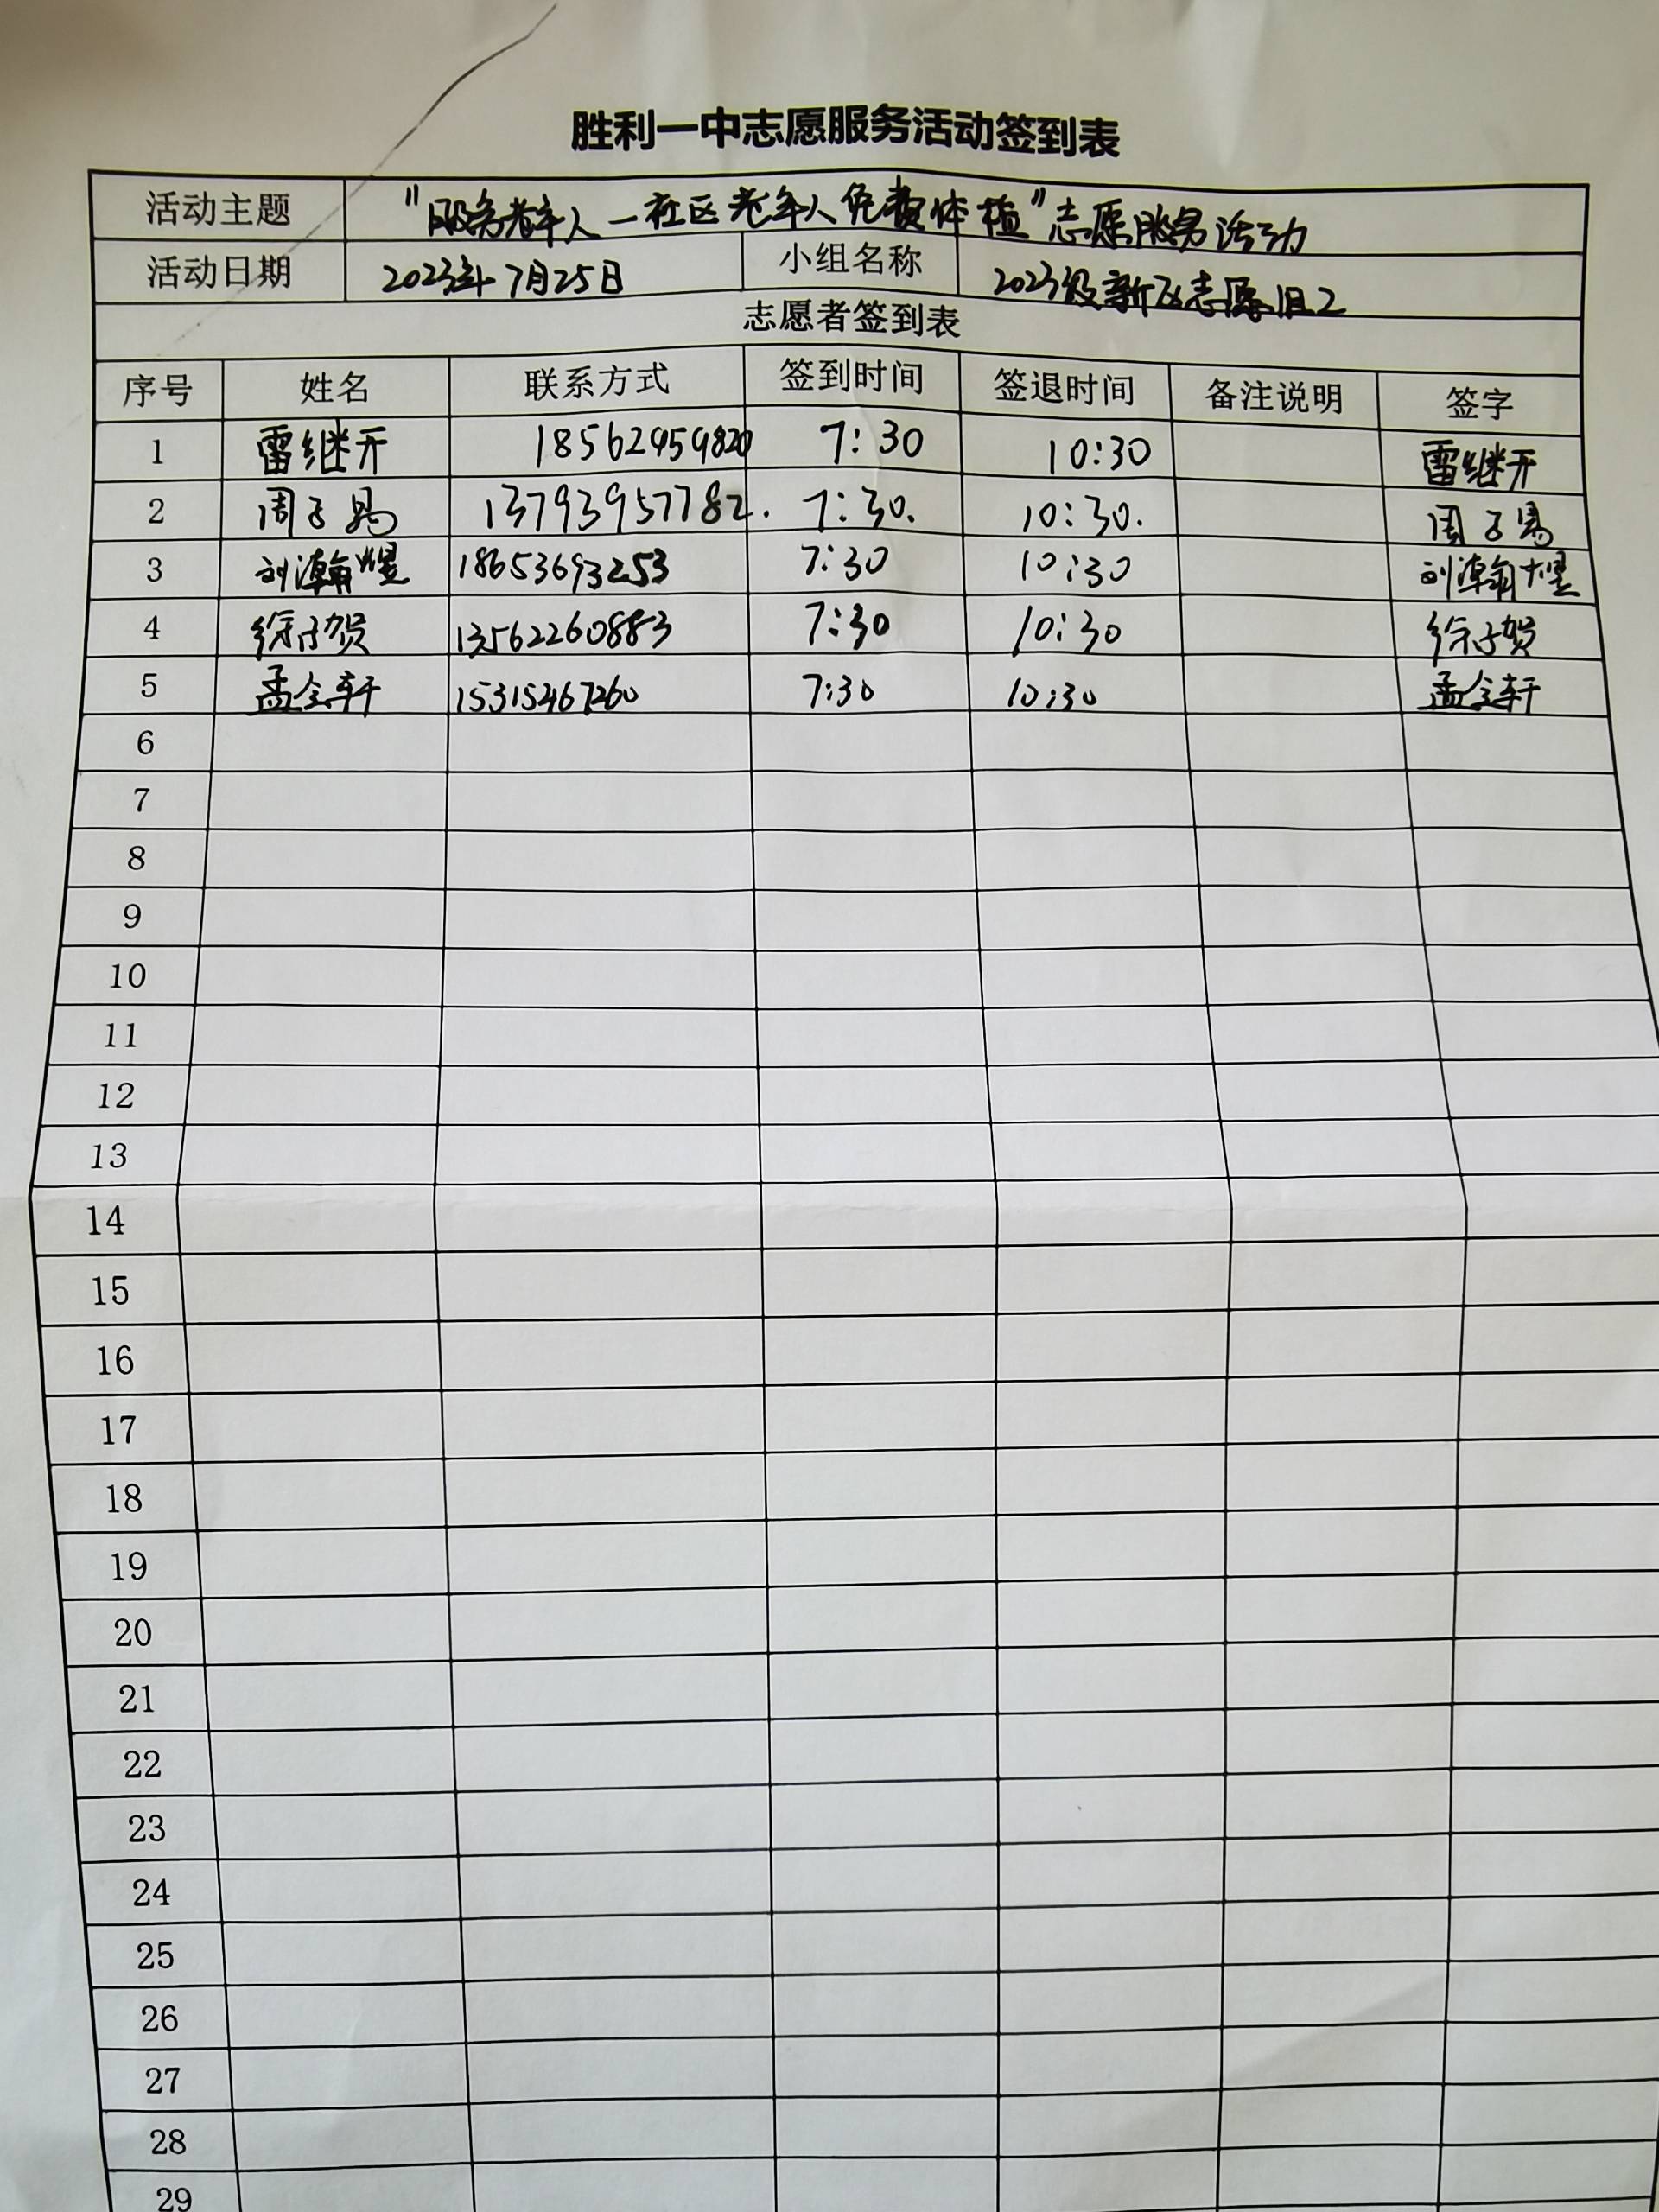 胜利一中志愿服务活动签到表
活动主题 "服务老年人—社区老年人免费体检"志愿服务活动
活动日期 2023年7月25日 小组名称 2023级新区志愿
志愿者签到表
序号 姓名 联系方式 签到时间 签退时间 备注说明 签字
1 雷继开 18562959820 7:30 10:30 雷继开
2 周子易 13793957782. 7:30. 10:30. 周子易
3 刘瀚煜 18653693253 7:30 10:30 刘瀚煜
4 徐子贺 13562260883 7:30 10:30 徐子贺
5 孟令轩 15315267260 7:30 10:30 孟令轩
6
7
8
9
10
11
12
13
14
15
16
17
18
19
20
21
22
23
24
25
26
27
28
29